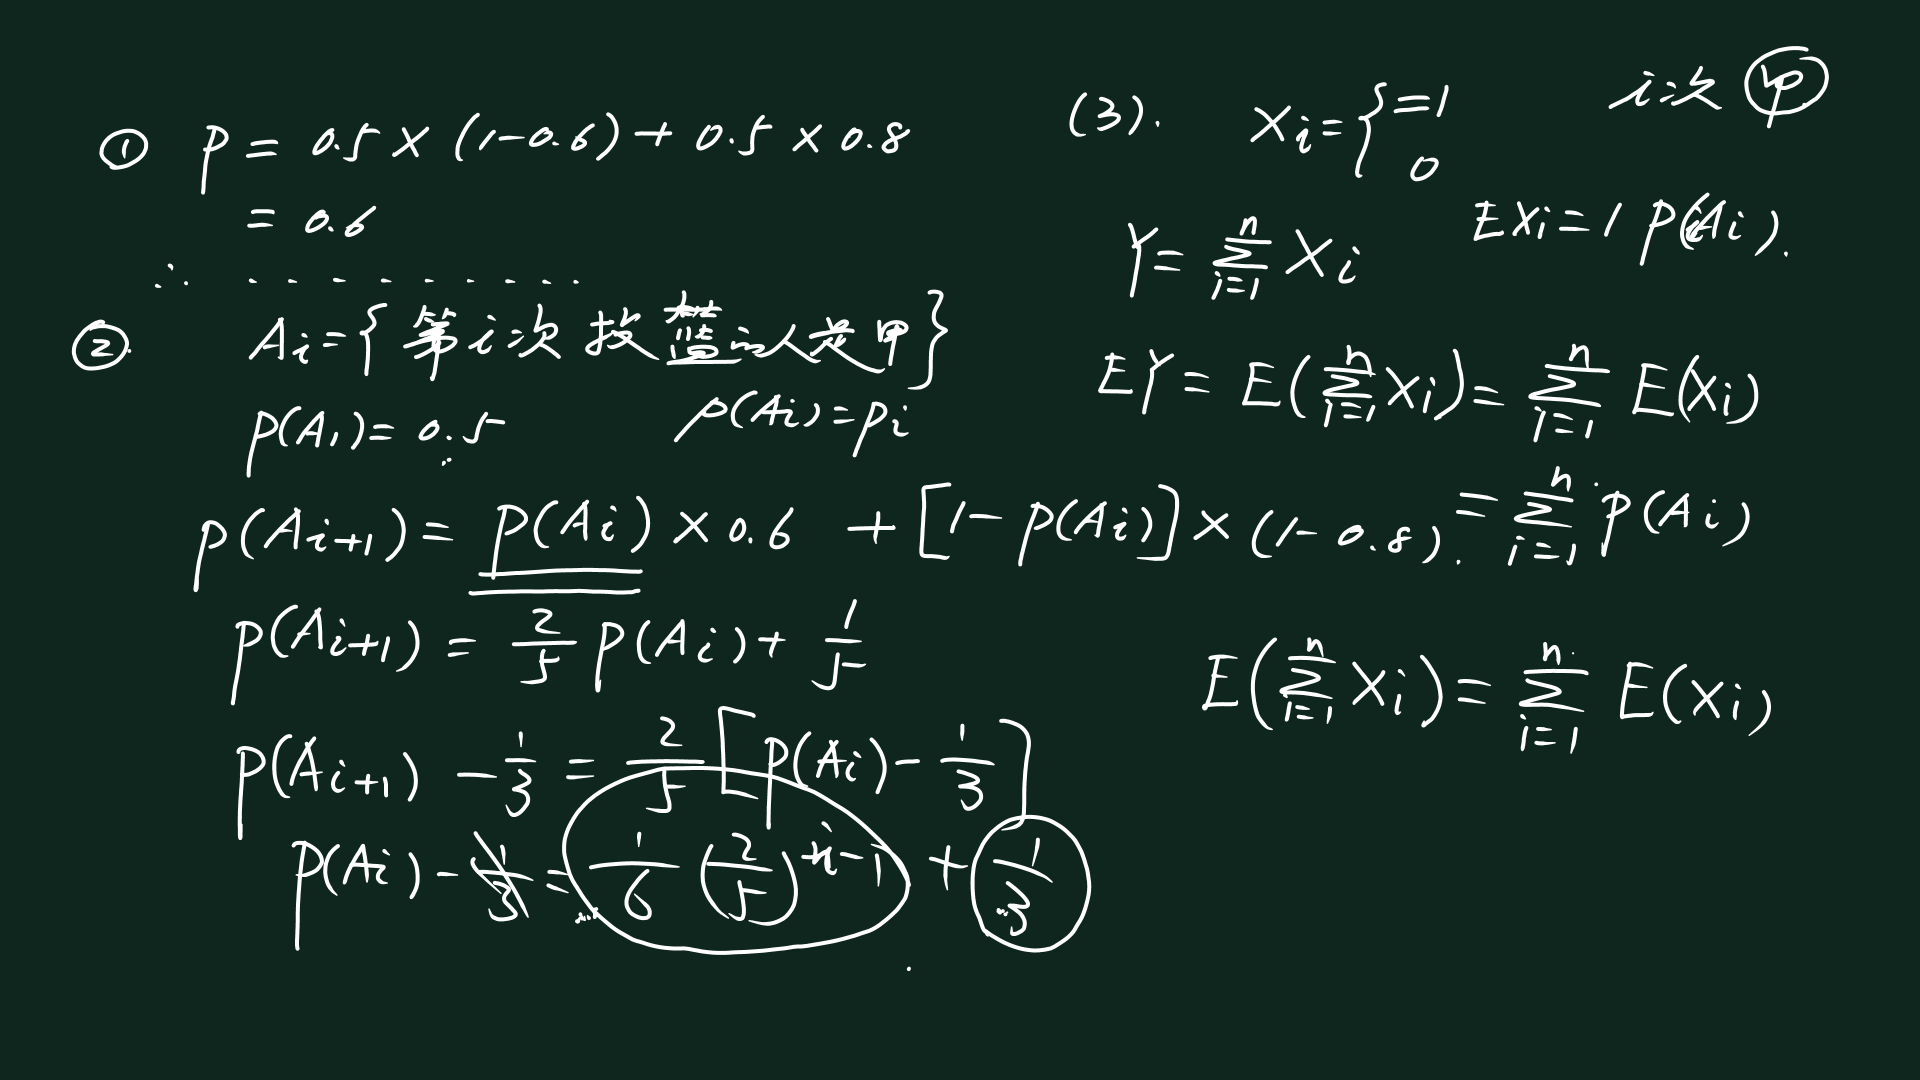 ① P = 0.5 × (1-0.6) + 0.5 × 0.8
= 0.6
∴ . . . . . . . . .
② Ai = { 第i次投蓝的人是甲 }
P(A1) = 0.5    P(Ai) = Pi
P(Ai+1) = P(Ai) × 0.6 + [1-P(Ai)] × (1-0.8).
P(Ai+1) = 2/5 P(Ai) + 1/5
P(Ai+1) - 1/3 = 2/5 [P(Ai) - 1/3]
P(Ai) - 1/3 = 1/6 (2/5)^i-1 + 1/3
(3). Xi = { =1    i次 甲
0
EXi = 1 P(Ai).
Y = Σ_{i=1}^{n} Xi
EY = E(Σ_{i=1}^{n} Xi) = Σ_{i=1}^{n} E(Xi)
= Σ_{i=1}^{n} P(Ai)
E(Σ_{i=1}^{n} Xi) = Σ_{i=1}^{n} E(Xi)